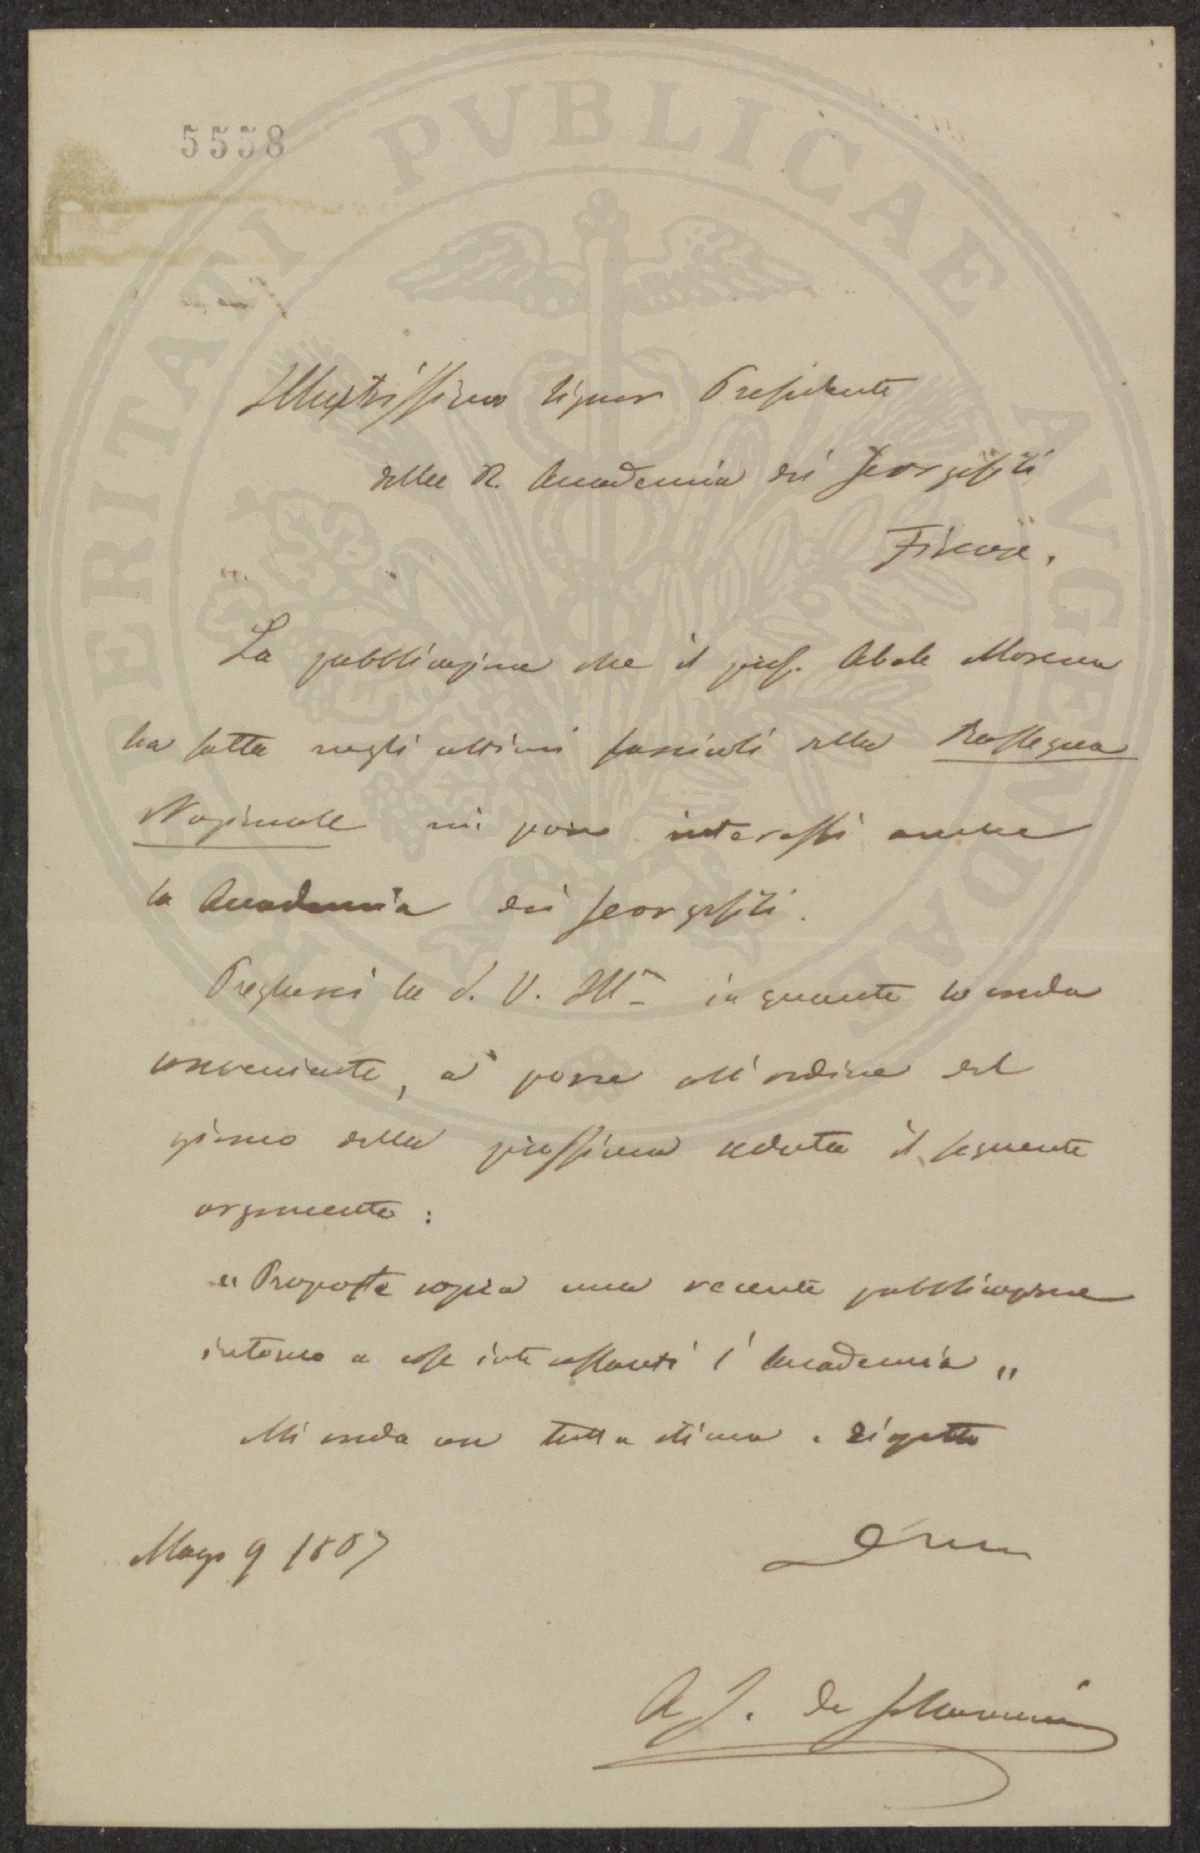 PROSPERITATI PVBLICAE AVGENDAE
5558
Illustrissimo Signor Presidente
della R. Accademia dei Georgofili
Firenze.
La pubblicazione che il prof. Abate Morena
ha fatta negli ultimi fascicoli della Rassegna
Nazionale mi pare interessi anche
la Accademia dei Georgofili.
Pregherei la S. V. Ill.ma in quanto lo creda
conveniente, a porre all'ordine del
giorno della prossima seduta il seguente
argomento:
"Proposte sopra una recente pubblicazione
intorno a cose interessanti l'Accademia"
Mi creda con tutta stima e rispetto
Marzo 9 1887
Devmo
A J. de Johannis